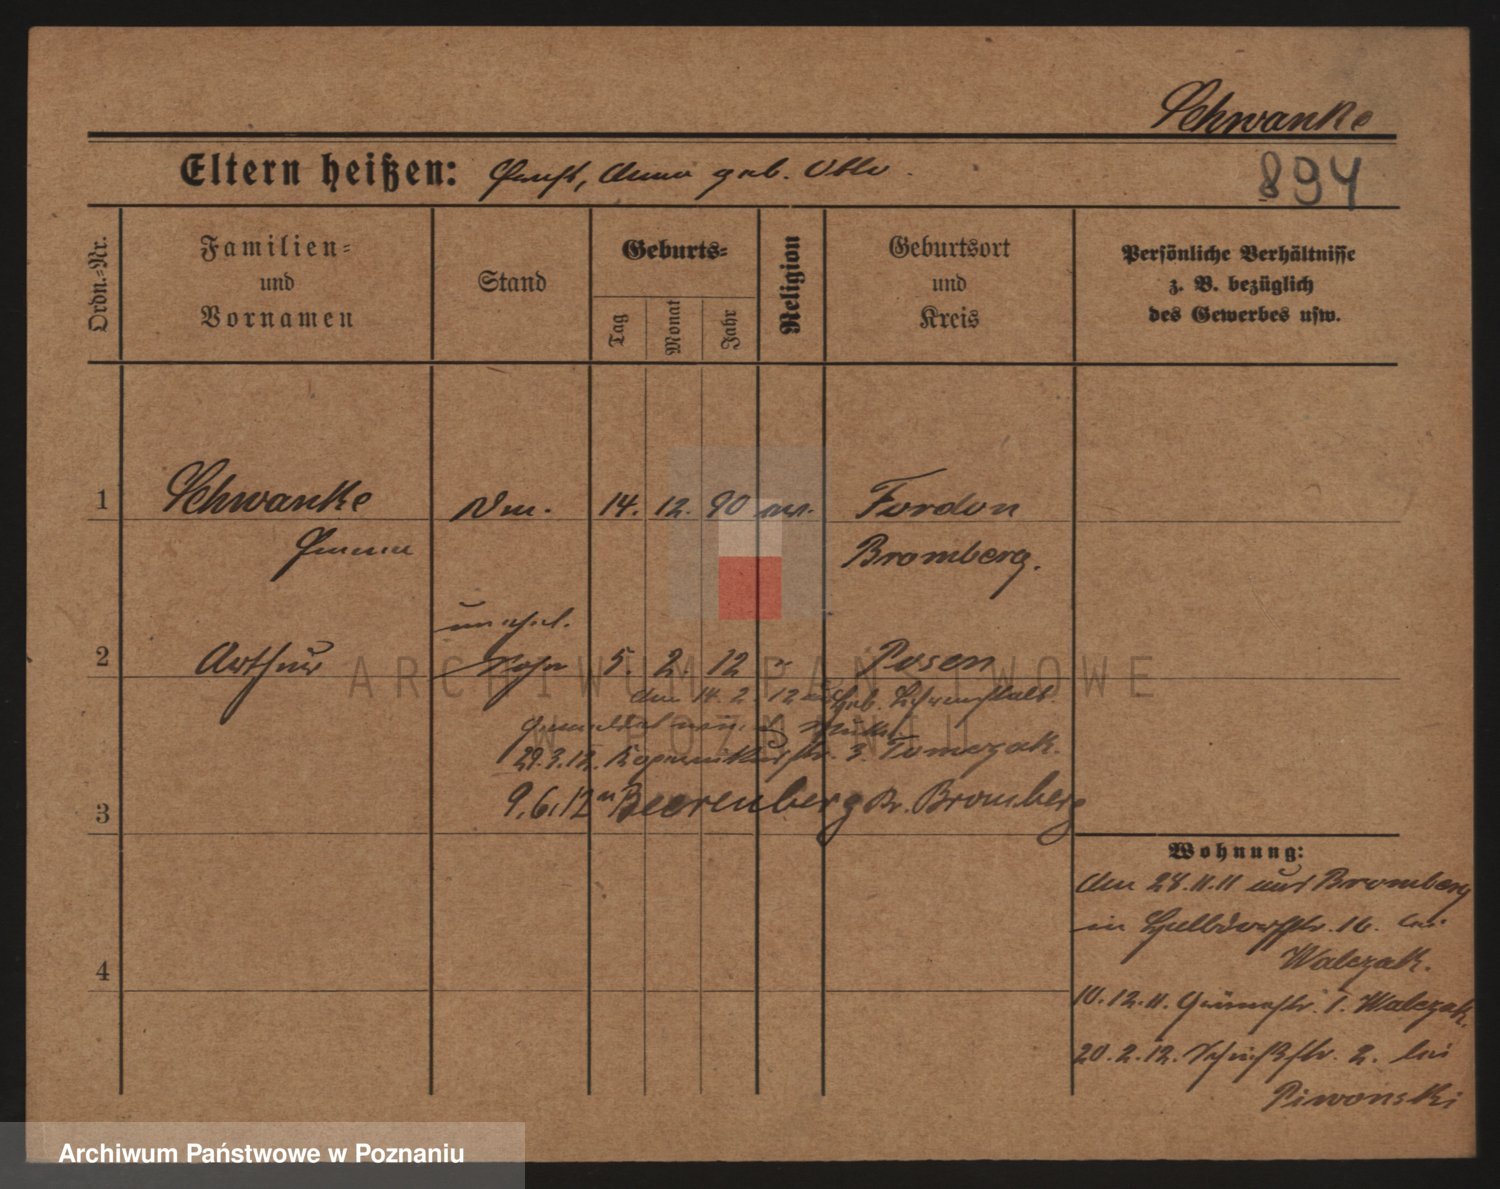 Schwanke
Eltern heißen: Ernst, Anna geb. Otto.
894
Ordn.=Nr.
Familien=
und
Vornamen
Stand
Geburts=
Tag
Monat
Jahr
Religion
Geburtsort
und
Kreis
Persönliche Verhältnisse
z. B. bezüglich
des Gewerbes usw.
1 Schwanke 14. 12. 90 ev. Fordon
Emma Bromberg.
unehel.
2 Arthur Sohn 5. 2 12 " Posen
den 14. 2. 12 Geb.
gemeldet
29.3.12. Kopernikusstr. 3. Tomczak.
3 9.6.12 n Beerenberg Kr. Bromberg
Wohnung:
den 28.11.11 aus Bromberg
in Halbdorfstr. 16. bei
Walczak.
4
10.12.11. 1. Walczak.
20.2.12. 2. bei
Piwonski
ARCHIWUM PAŃSTWOWE
W POZNANIU
Archiwum Państwowe w Poznaniu